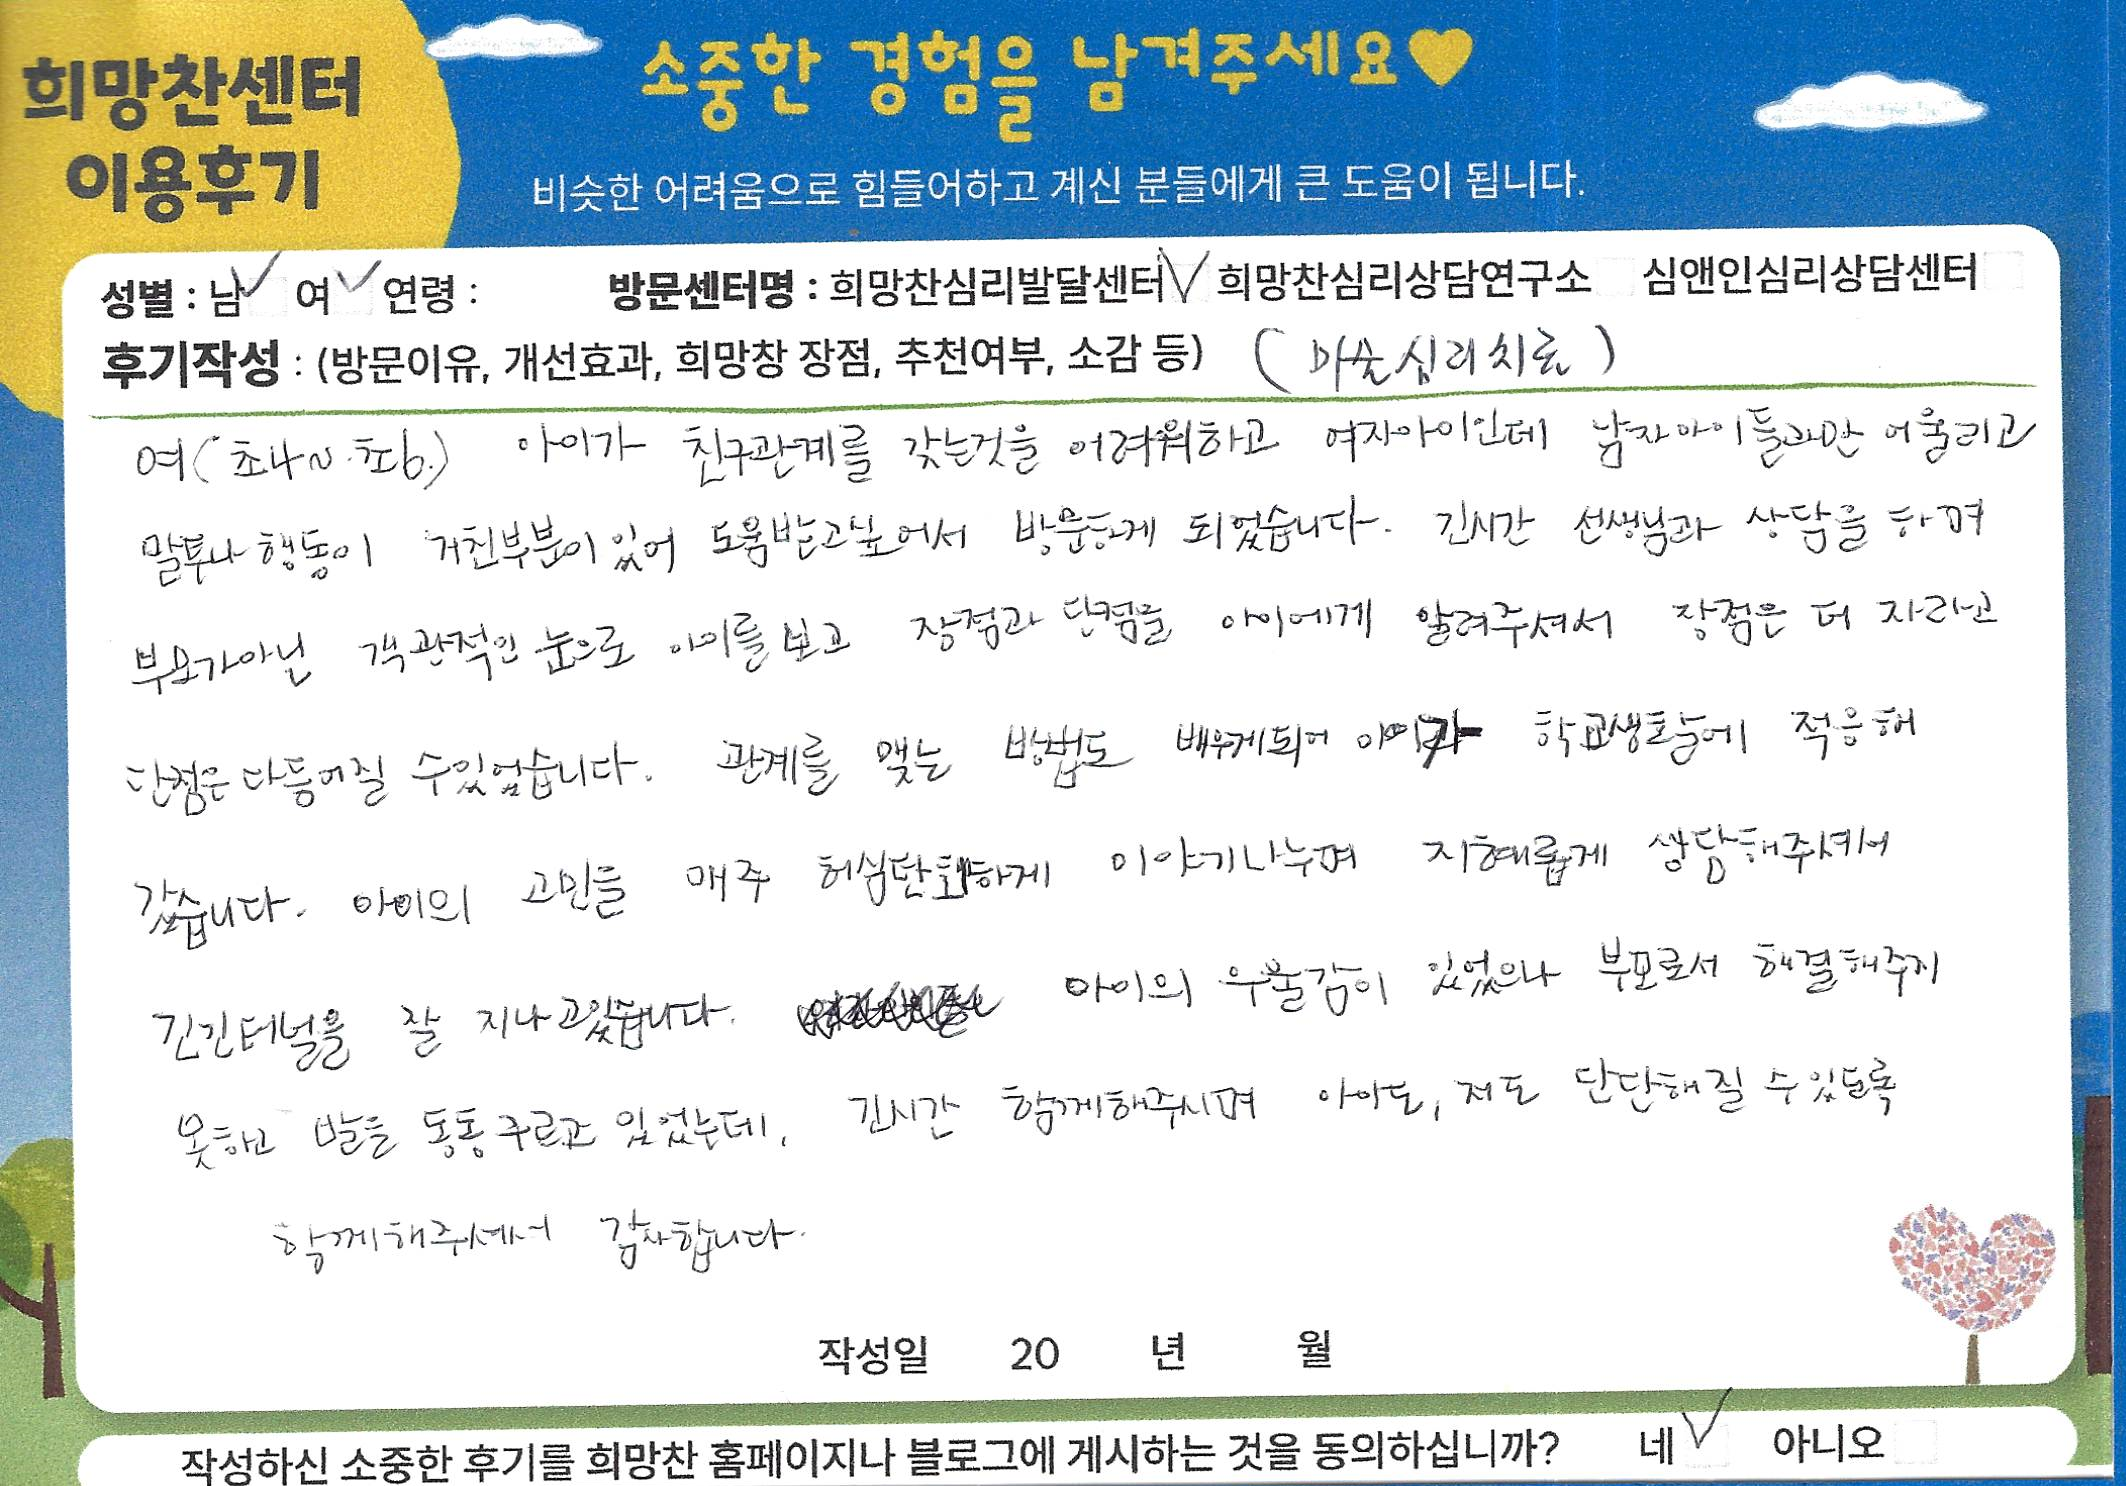 희망찬센터
이용후기
소중한 경험을 남겨주세요♥
비슷한 어려움으로 힘들어하고 계신 분들에게 큰 도움이 됩니다.
성별 : 남✓ 여✓ 연령 : 방문센터명 : 희망찬심리발달센터✓ 희망찬심리상담연구소 심앤인심리상담센터
후기작성 : (방문이유, 개선효과, 희망창 장점, 추천여부, 소감 등) (마술심리치료)
여(초4~초6.) 아이가 친구관계를 갖는것을 어려워하고 여자아이인데 남자아이들과만 어울리고
말투나 행동이 거친부분이 있어 도움받고싶어서 방문하게 되었습니다. 긴시간 선생님과 상담을 하며
부모가아닌 객관적인 눈으로 아이를 보고 장점과 단점을 아이에게 알려주셔서 장점은 더 자라난
단점은 다듬어질 수있었습니다. 관계를 맺는 방법도 배우게되어 아이가 학교생활에 적응해
갔습니다. 아이의 고민을 매주 허심탄회하게 이야기나누며 지혜롭게 상담해주셔서
긴긴터널을 잘 지나고있습니다. 아이의 우울감이 있었으나 부모로서 해결해주지
못하고 발을 동동 구르고 있었는데, 긴시간 함께해주시며 아이도, 저도 단단해질 수있도록
함께해주셔서 감사합니다.
작성일 20 년 월
작성하신 소중한 후기를 희망찬 홈페이지나 블로그에 게시하는 것을 동의하십니까? 네✓ 아니오